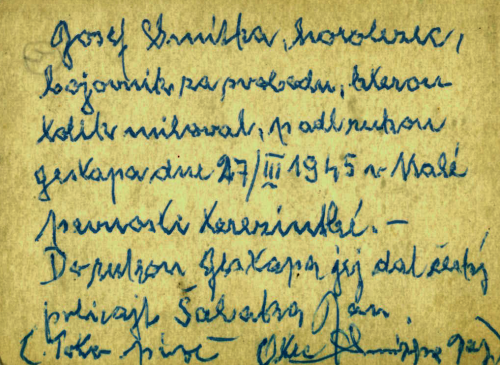 Josef Smitka, horolezec,
bojovník za svobodu, kterou
tolik miloval, padl rukou
gestapa dne 27/III 1945 v Malé
pevnosti terezínské. —
Do rukou gestapa jej dal český
policajt Šabatka Jan.
(Toto píše